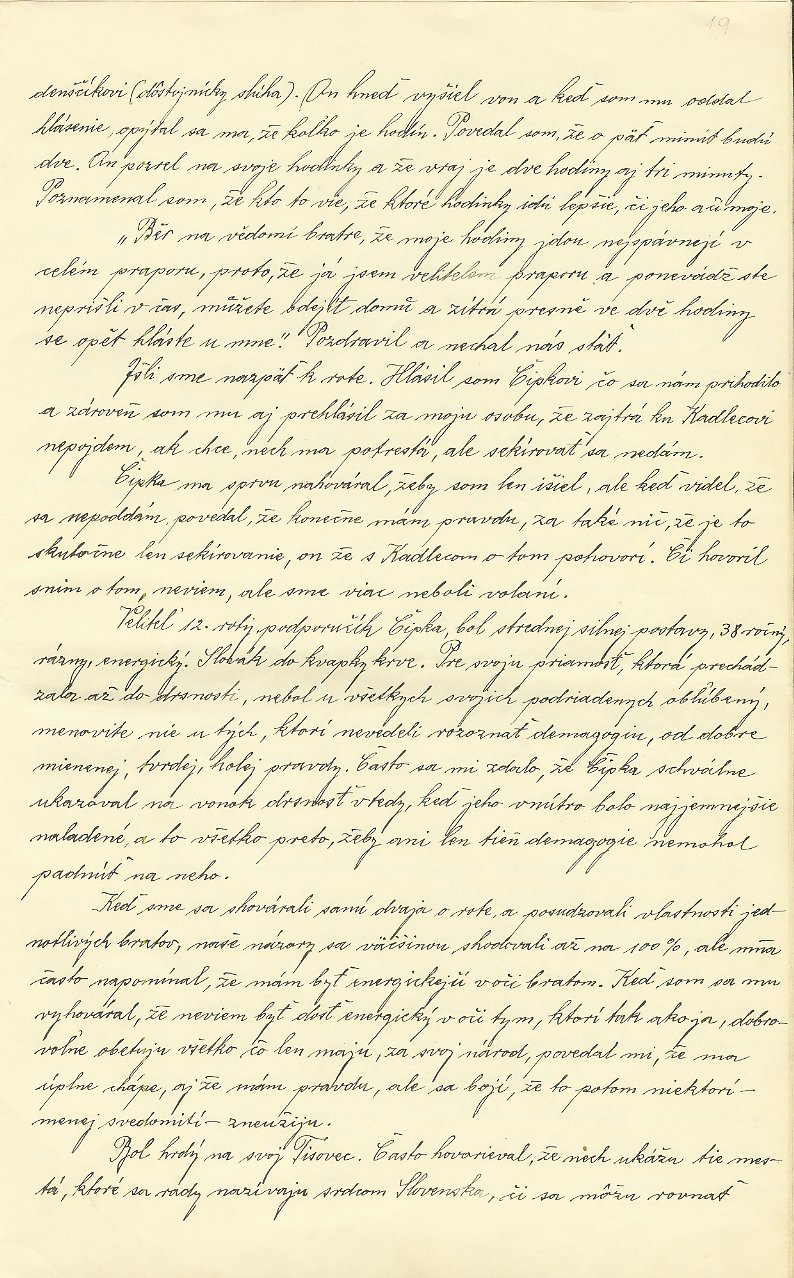 19
denščíkovi (dôstojnícky sluha). On hneď vyšiel von a keď som mu oddal
hlásenie, opýtal sa ma, že koľko je hodín. Povedal som, že o päť minút budú
dve. An pozrel na svoje hodinky a že vraj je dve hodiny aj tri minuty.
Poznamenal som, že kto to vie, že ktoré hodinky idú lepšie, či jeho a či moje.
„Běr na vědomí bratre, že moje hodiny jdou nejspávneji v
celém praporu, proto, že já jsem velitelem praporu a ponevádž ste
neprišli v čas, můžete odejít domů a zítrá presně ve dvě hodiny
se opět hláste u mne." Pozdravil a nechal nás stáť.
Išli sme nazpäť k rote. Hlásil som Čipkovi čo sa nám prihodilo
a zároveň som mu aj prehlásil za moju osobu, že zajtrá ku Kadlecovi
nepojdem, ak chce, nech ma potrestá, ale sekírovať sa nedám.
Čipka ma sprvu nahováral, žeby som len išiel, ale keď videl, že
sa nepoddám, povedal, že konečne mám pravdu, za také nič, že je to
skutočne len sekírovanie, on že s Kadlecom o tom pohovorí. Či hovoril
sním o tom, neviem, ale sme viac neboli volaní.
Veliteľ 12. roty, podporučík Čipka, bol strednej silnej postavy, 38 ročný,
rázny, energický. Slovák do kvapky krve. Pre svoju priamosť, ktorá prechád-
zala až do drsnosti, nebol u všetkych svojich podriadenych obľúbený,
menovite nie u tých, ktorí nevedeli rozoznať demagogiu, od dobre
mienenej, tvrdej, holej pravdy. Často sa mi zdalo, že Čipka schválne
ukazoval na vonok drsnosť vtedy, keď jeho vnútro bolo najjemnejšie
naladené, a to všetko preto, žeby ani len tieň demagogie nemohol
padnúť na neho.
Keď sme sa shovárali samí dvaja o rote, a posudzovali vlastnosti jed-
notlivých bratov, naše názory sa väčšinou shodovali až na 100%, ale mňa
často napomínal, že mám byť energickejší voči bratom. Keď som sa mu
vyhováral, že neviem byť dosť energický voči tym, ktorí tak ako ja, dobro-
voľne obetuju všetko čo len maju, za svoj národ, povedal mi, že ma
úplne chápe, aj že mám pravdu, ale sa bojí, že to potom niektorí –
menej svedomití – zneužiju.
Bol hrdý na svoj Tisovec. Často hovorieval, že nech ukážu tie mes-
tá, ktoré sa rady nazívaju srdcom Slovenska, či sa môžu rovnať